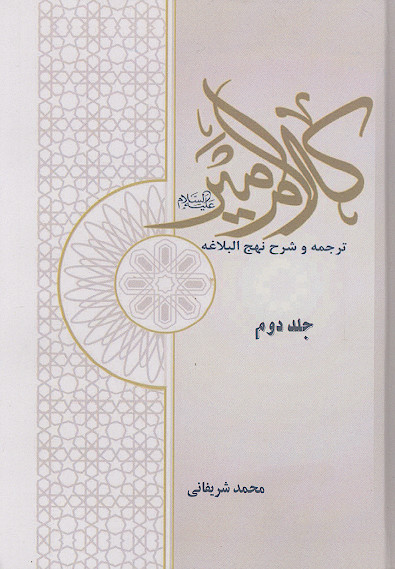 کلام امیر
علیه‌السلام
ترجمه و شرح نهج البلاغه
جلد دوم
محمد شریفانی